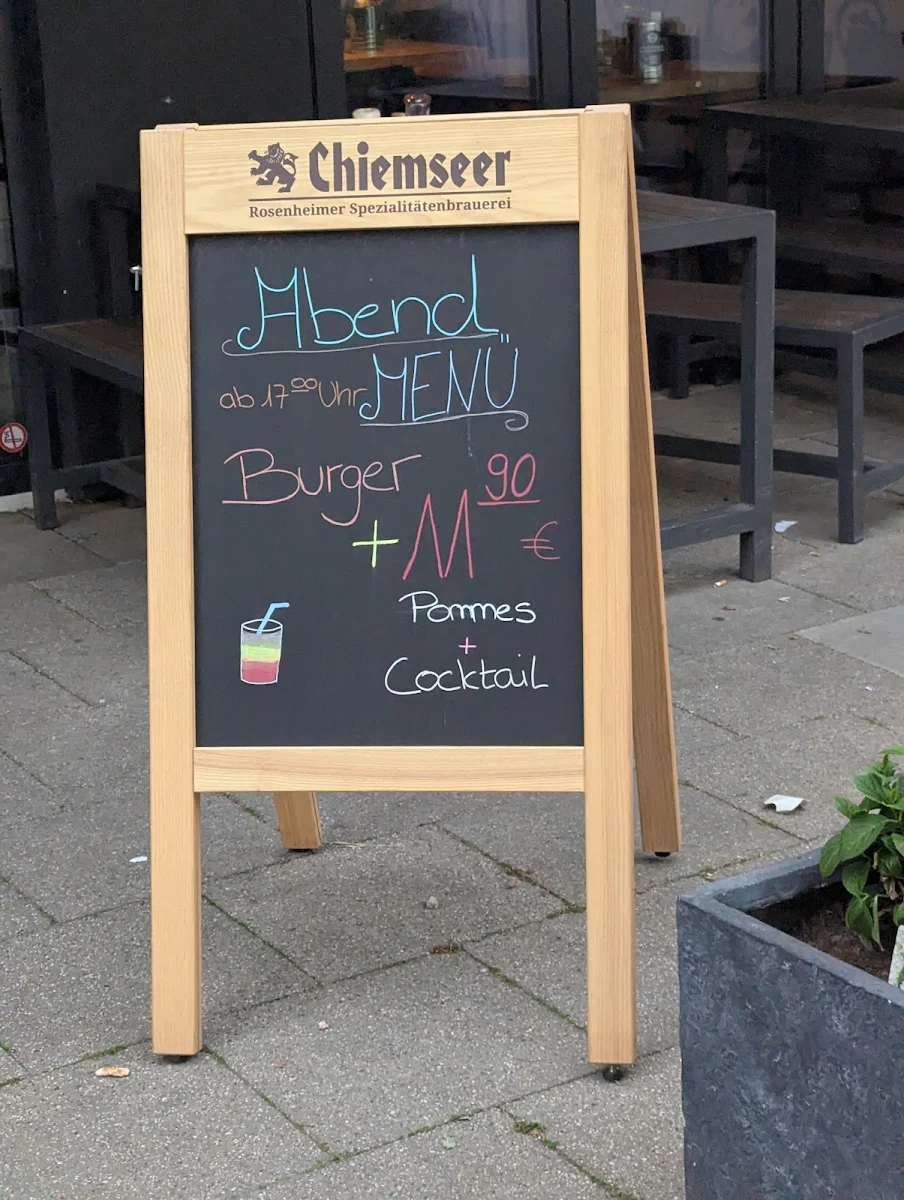 Chiemseer
Rosenheimer Spezialitätenbrauerei
Abend
ab 17⁰⁰ Uhr MENÜ
Burger
+ 11⁹⁰ €
Pommes
+
Cocktail